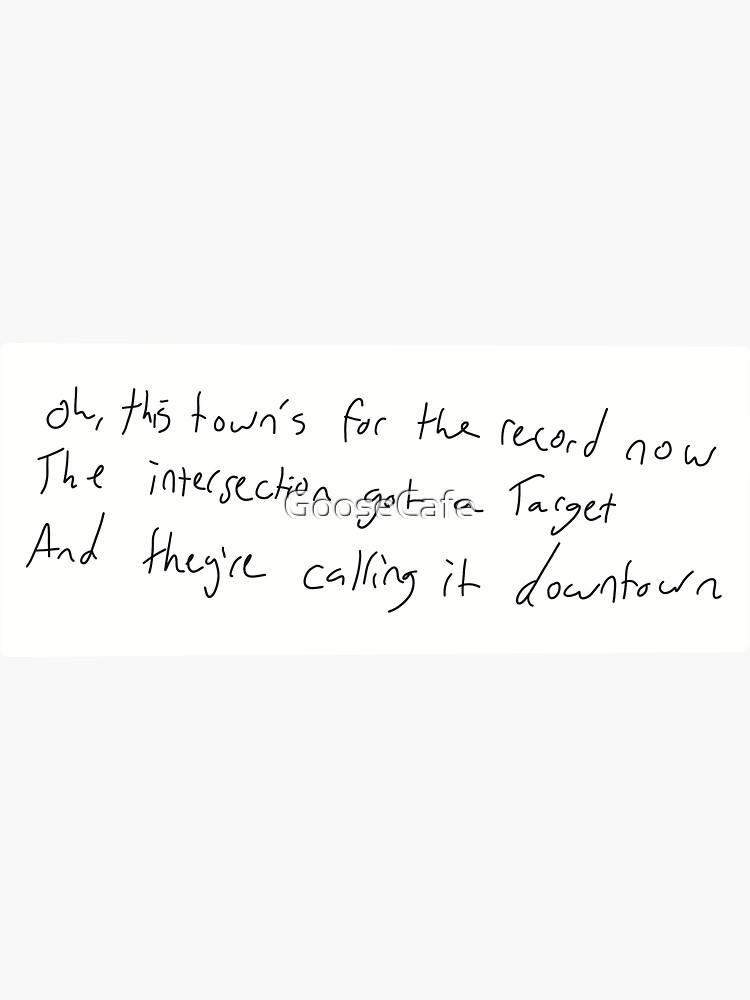 oh, this town's for the record now
The intersection got a Target
And they're calling it downtown
GooseCafe